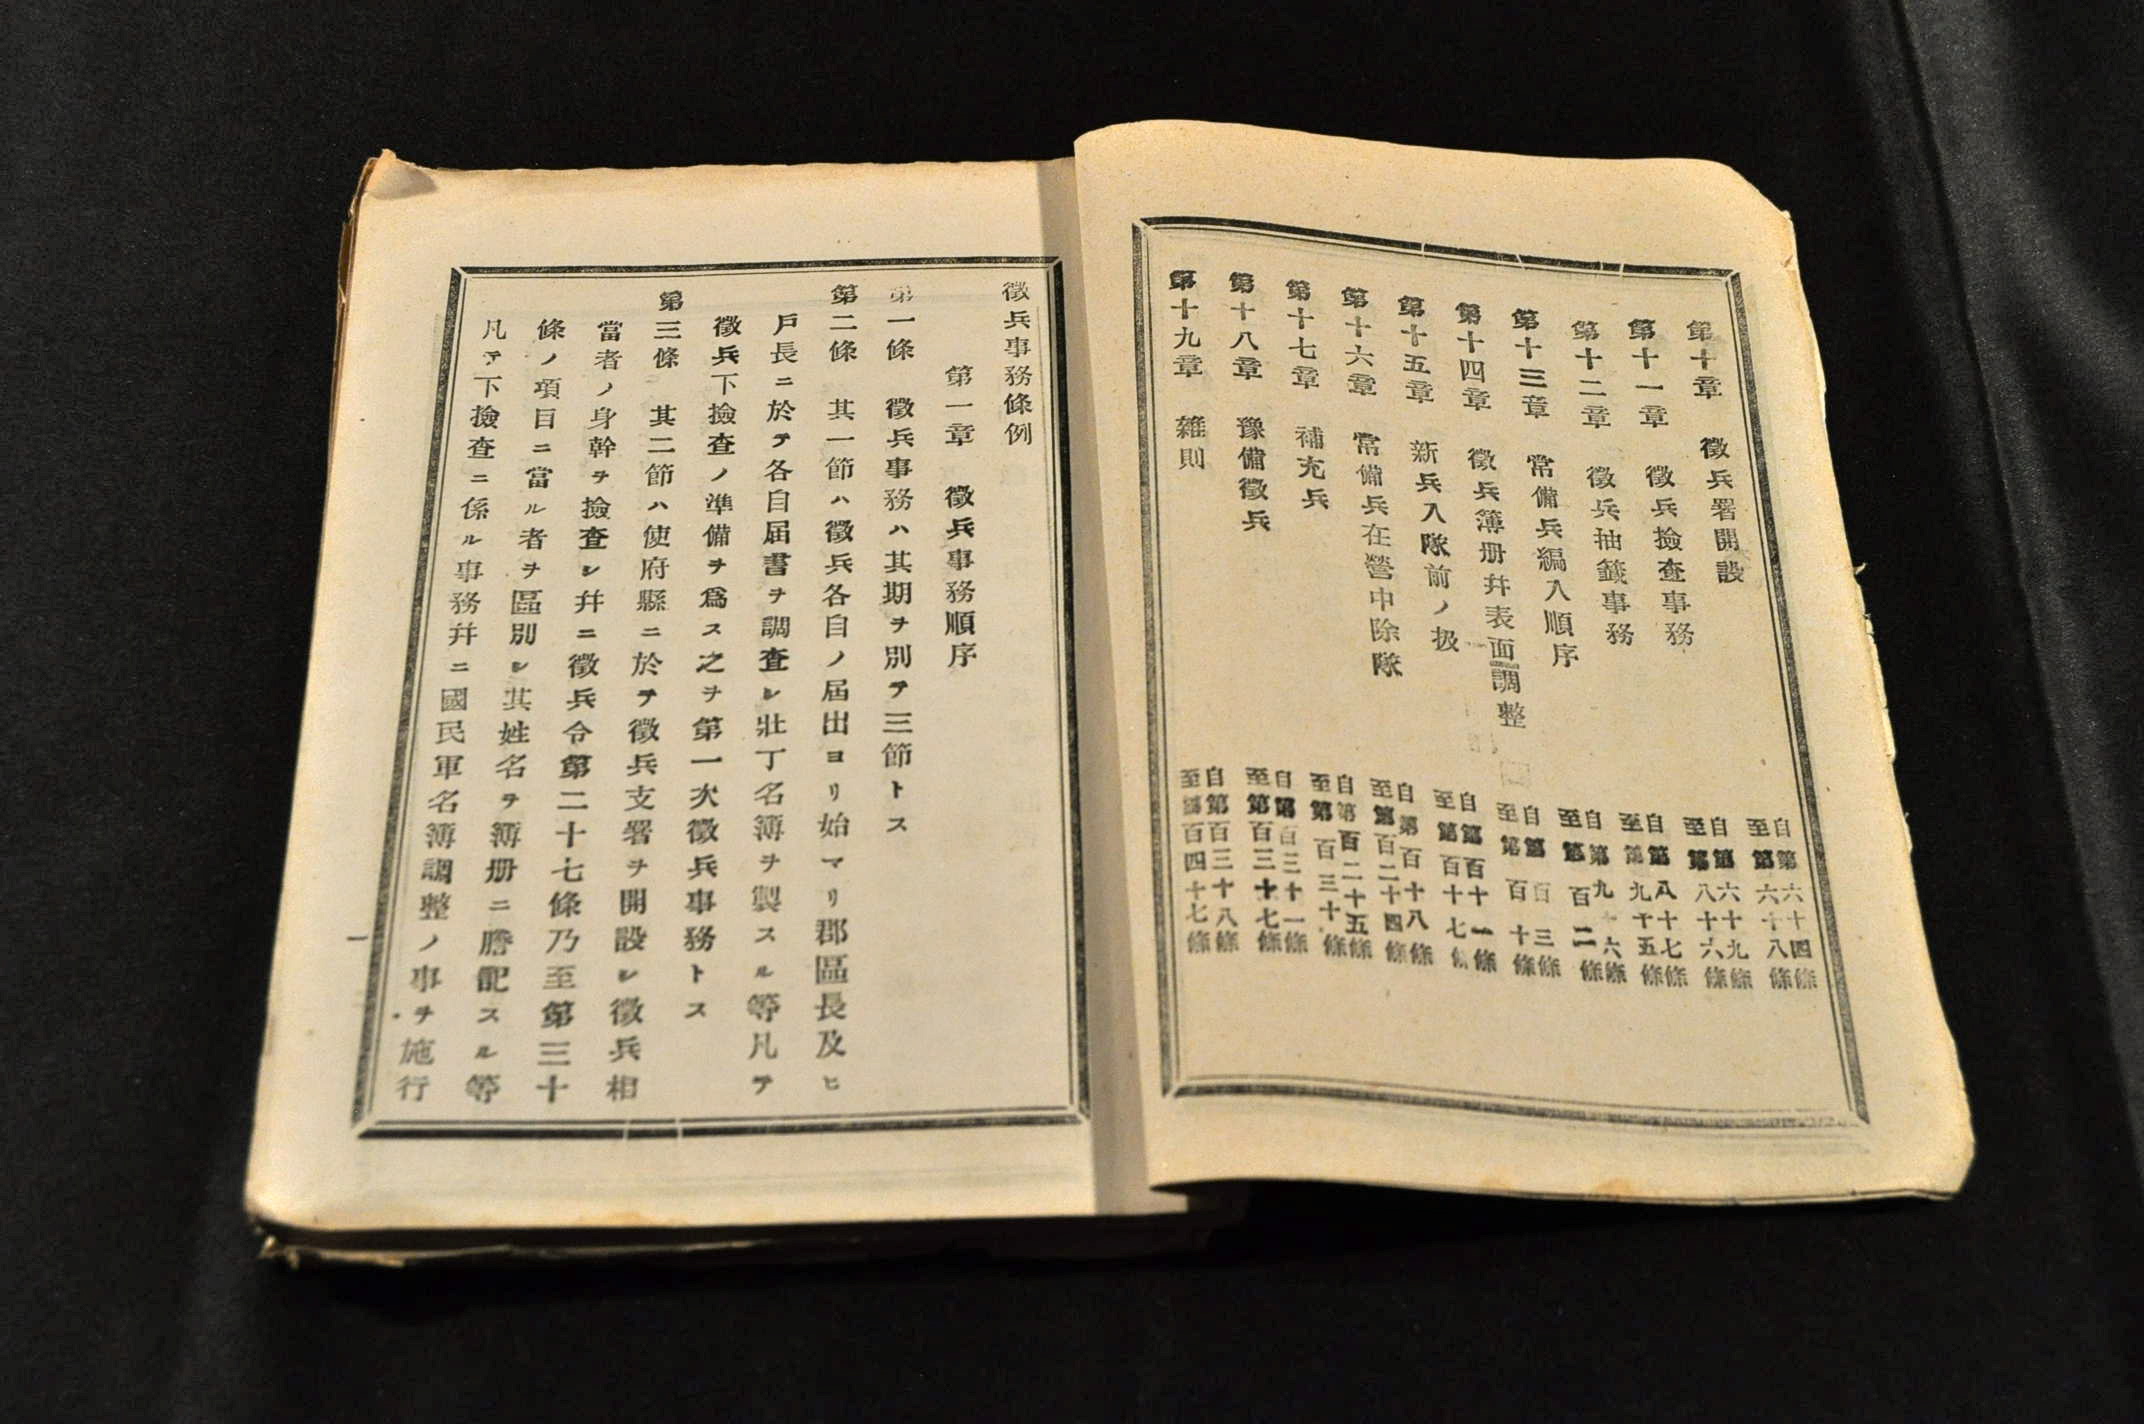 第十章 徵兵署開設 自第六十四條至第六十八條
第十一章 徵兵撿查事務 自第六十九條至第八十六條
第十二章 徵兵抽籤事務 自第八十七條至第九十五條
第十三章 常備兵編入順序 自第九十六條至第百二條
第十四章 徵兵簿册幷表面調整 自第百三條至第百十條
第十五章 新兵入隊前ノ扱 自第百十一條至第百十七條
第十六章 常備兵在營中除隊 自第百十八條至第百二十四條
第十七章 補充兵 自第百二十五條至第百三十條
第十八章 豫備徵兵 自第百三十一條至第百三十七條
第十九章 雜則 自第百三十八條至第百四十七條
徵兵事務條例
第一章 徵兵事務順序
第一條 徵兵事務ハ其期ヲ別テ三節トス
第二條 其一節ハ徵兵各自ノ屆出ヨリ始マリ郡區長及ヒ
戶長ニ於テ各自屆書ヲ調查シ壯丁名簿ヲ製スル等凡テ
徵兵下撿查ノ準備ヲ爲ス之ヲ第一次徵兵事務トス
第三條 其二節ハ使府縣ニ於テ徵兵支署ヲ開設シ徵兵相
當者ノ身幹ヲ撿查シ幷ニ徵兵令第二十七條乃至第三十
條ノ項目ニ當ル者ヲ區別シ其姓名ヲ簿册ニ謄記スル等
凡テ下撿查ニ係ル事務幷ニ國民軍名簿調整ノ事ヲ施行
一